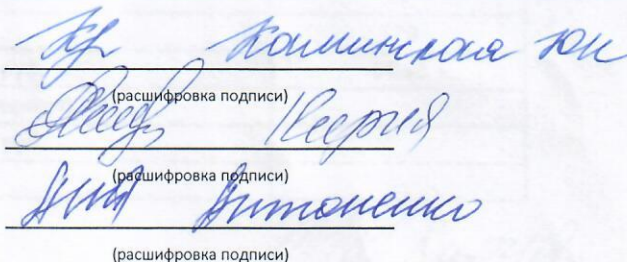 Каминская ЮК
(расшифровка подписи)
Кирия
(расшифровка подписи)
Антоненко
(расшифровка подписи)